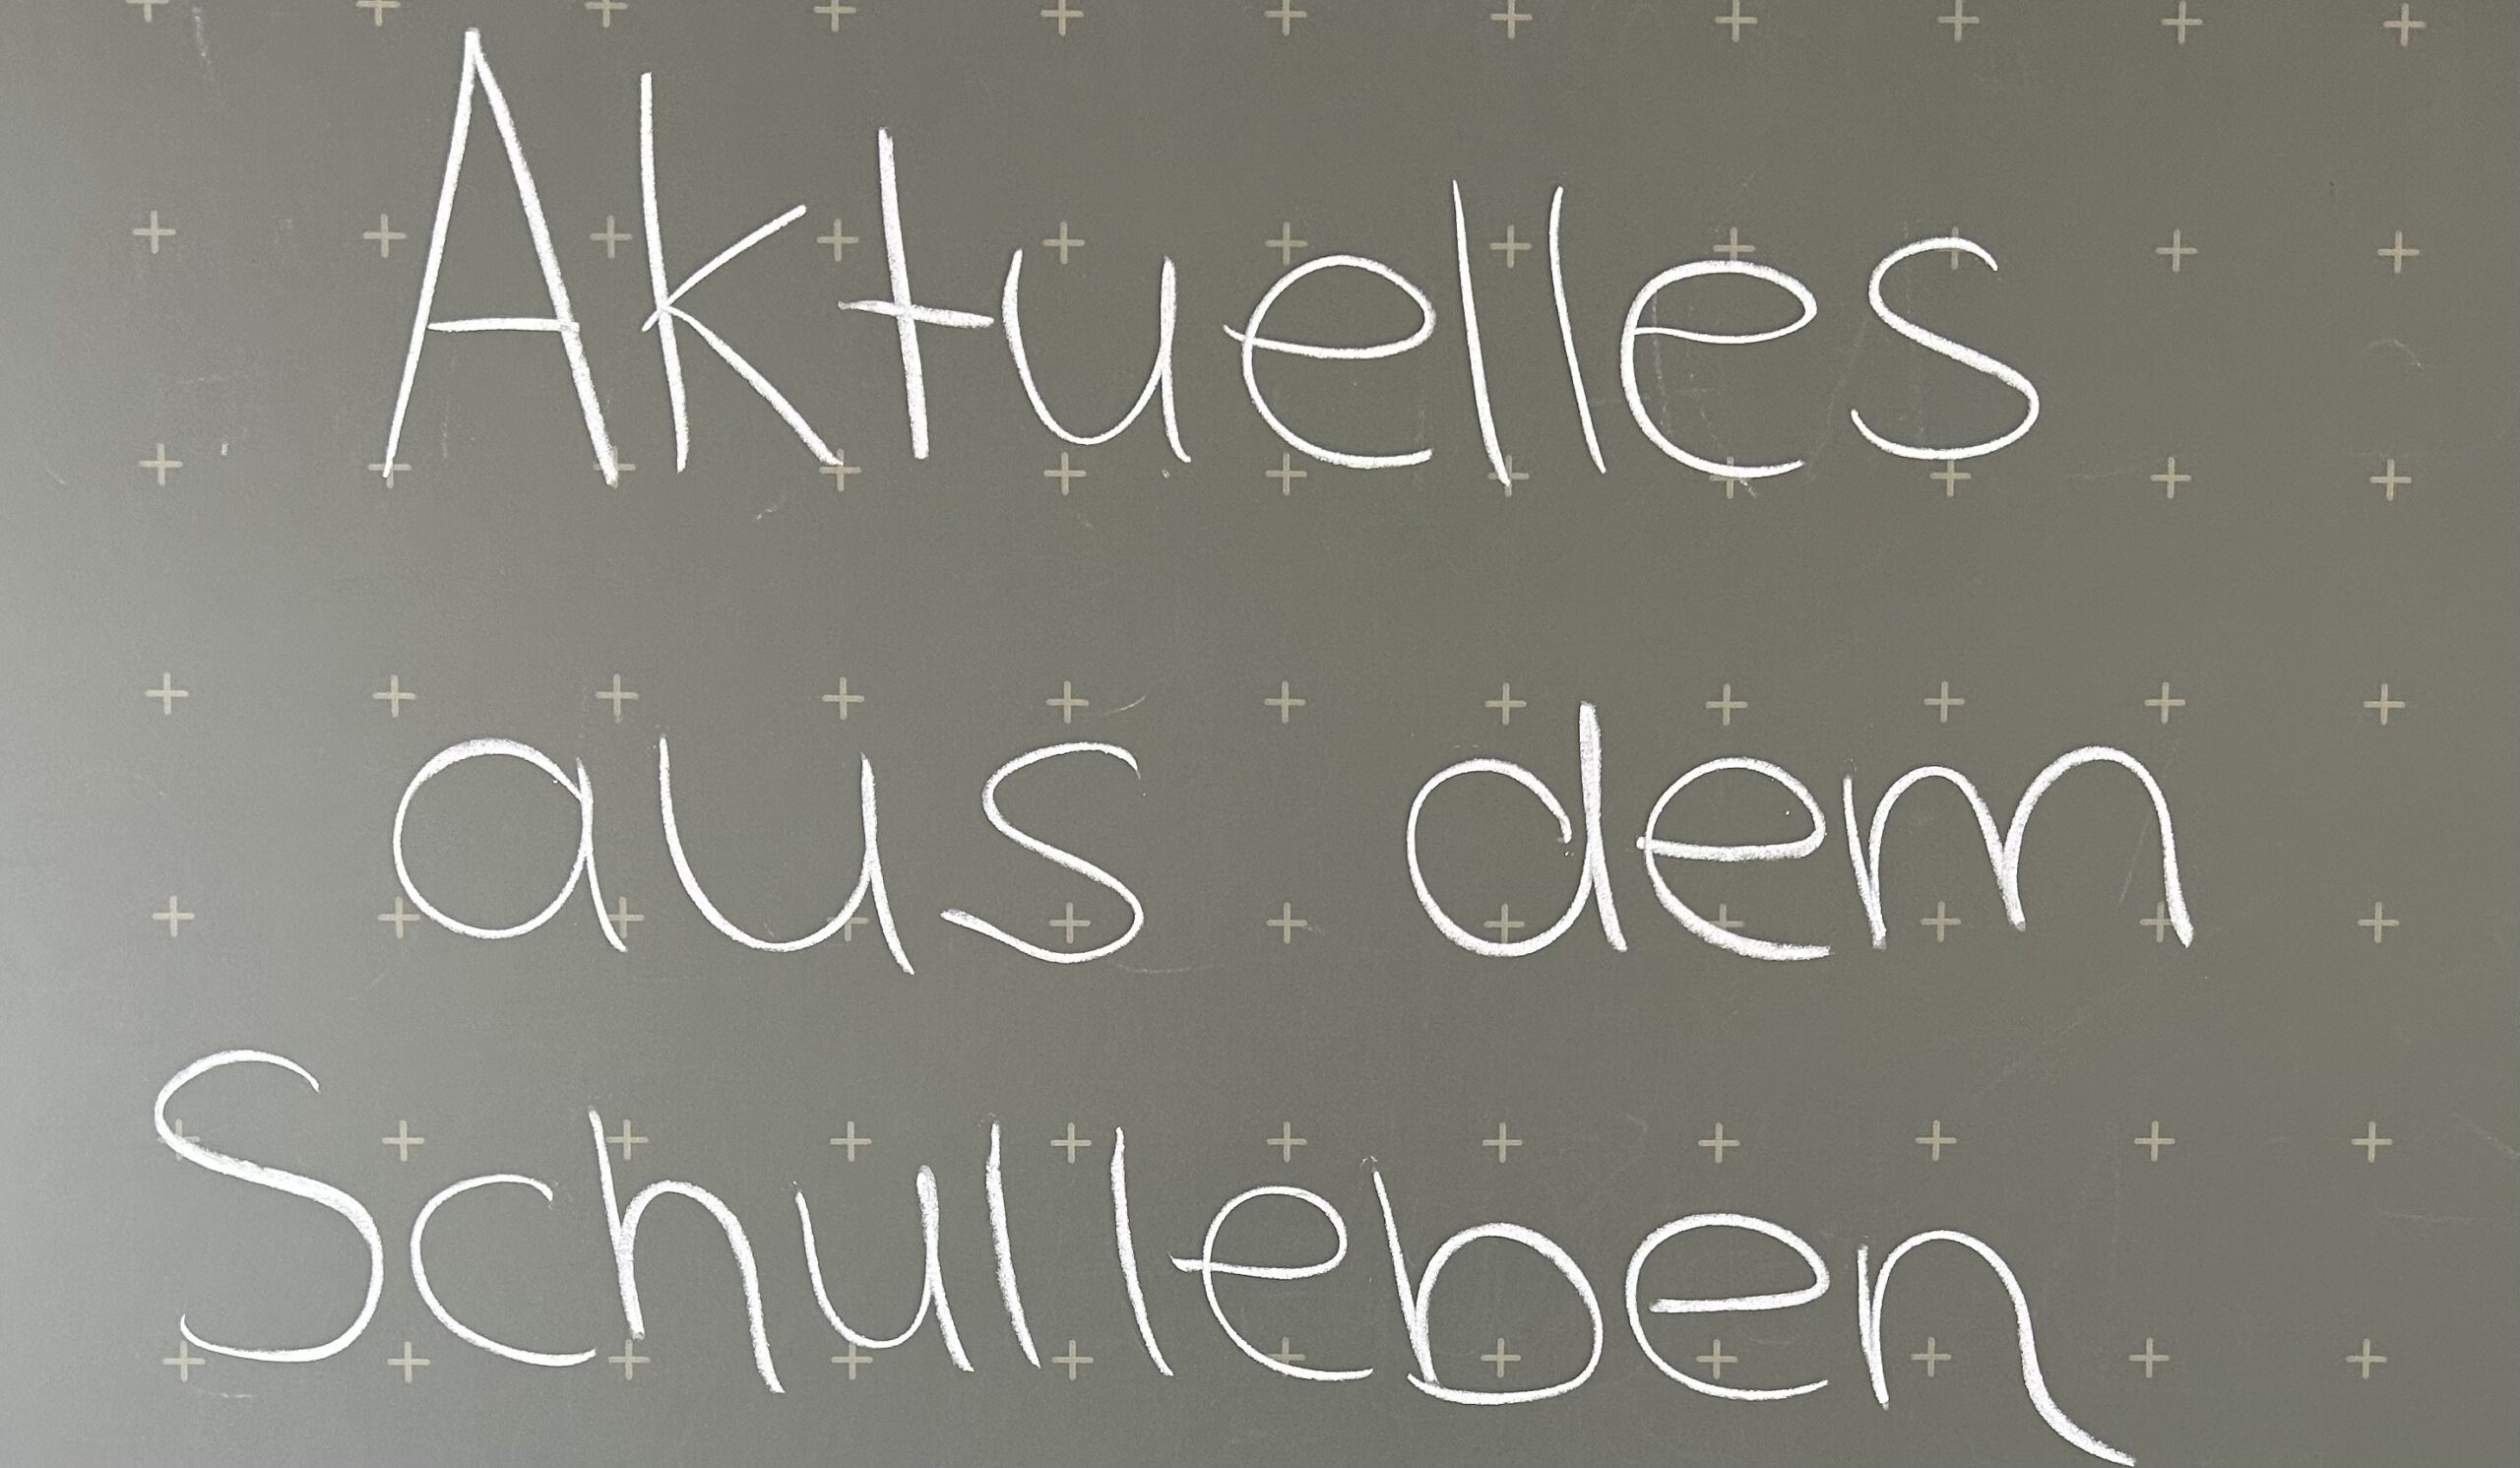 Aktuelles
aus dem
Schulleben